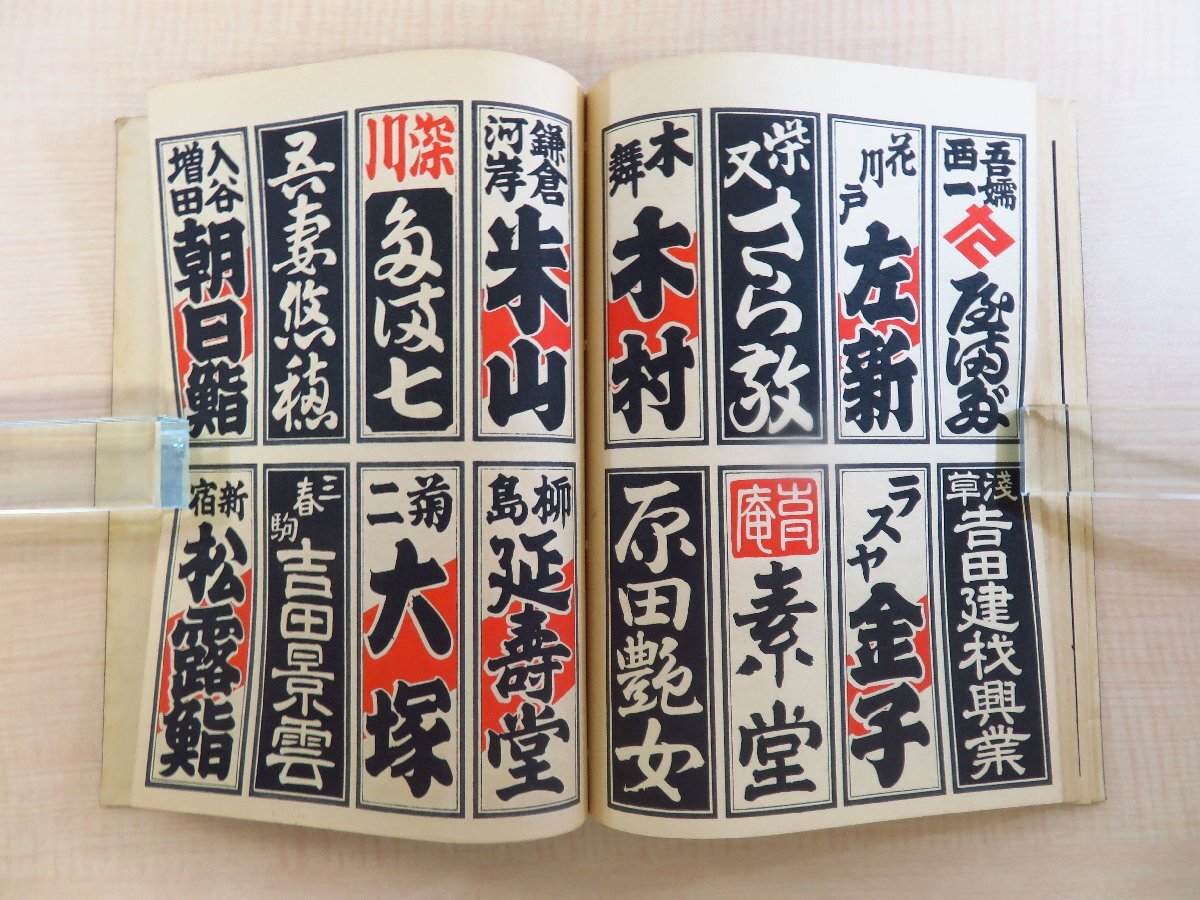 吾嬬
西一
花川戸
左新
柴又
さら敬
木舞
木村
淺草
吉田建材興業
ラスヤ
金子
庵
素堂
原田艶女
鎌倉
河岸
朱山
深川
多満七
吾妻悠穂
入谷
増田
朝日鮨
柳島
延壽堂
菊二
大塚
三春駒
吉田景雲
新宿
松露鮨